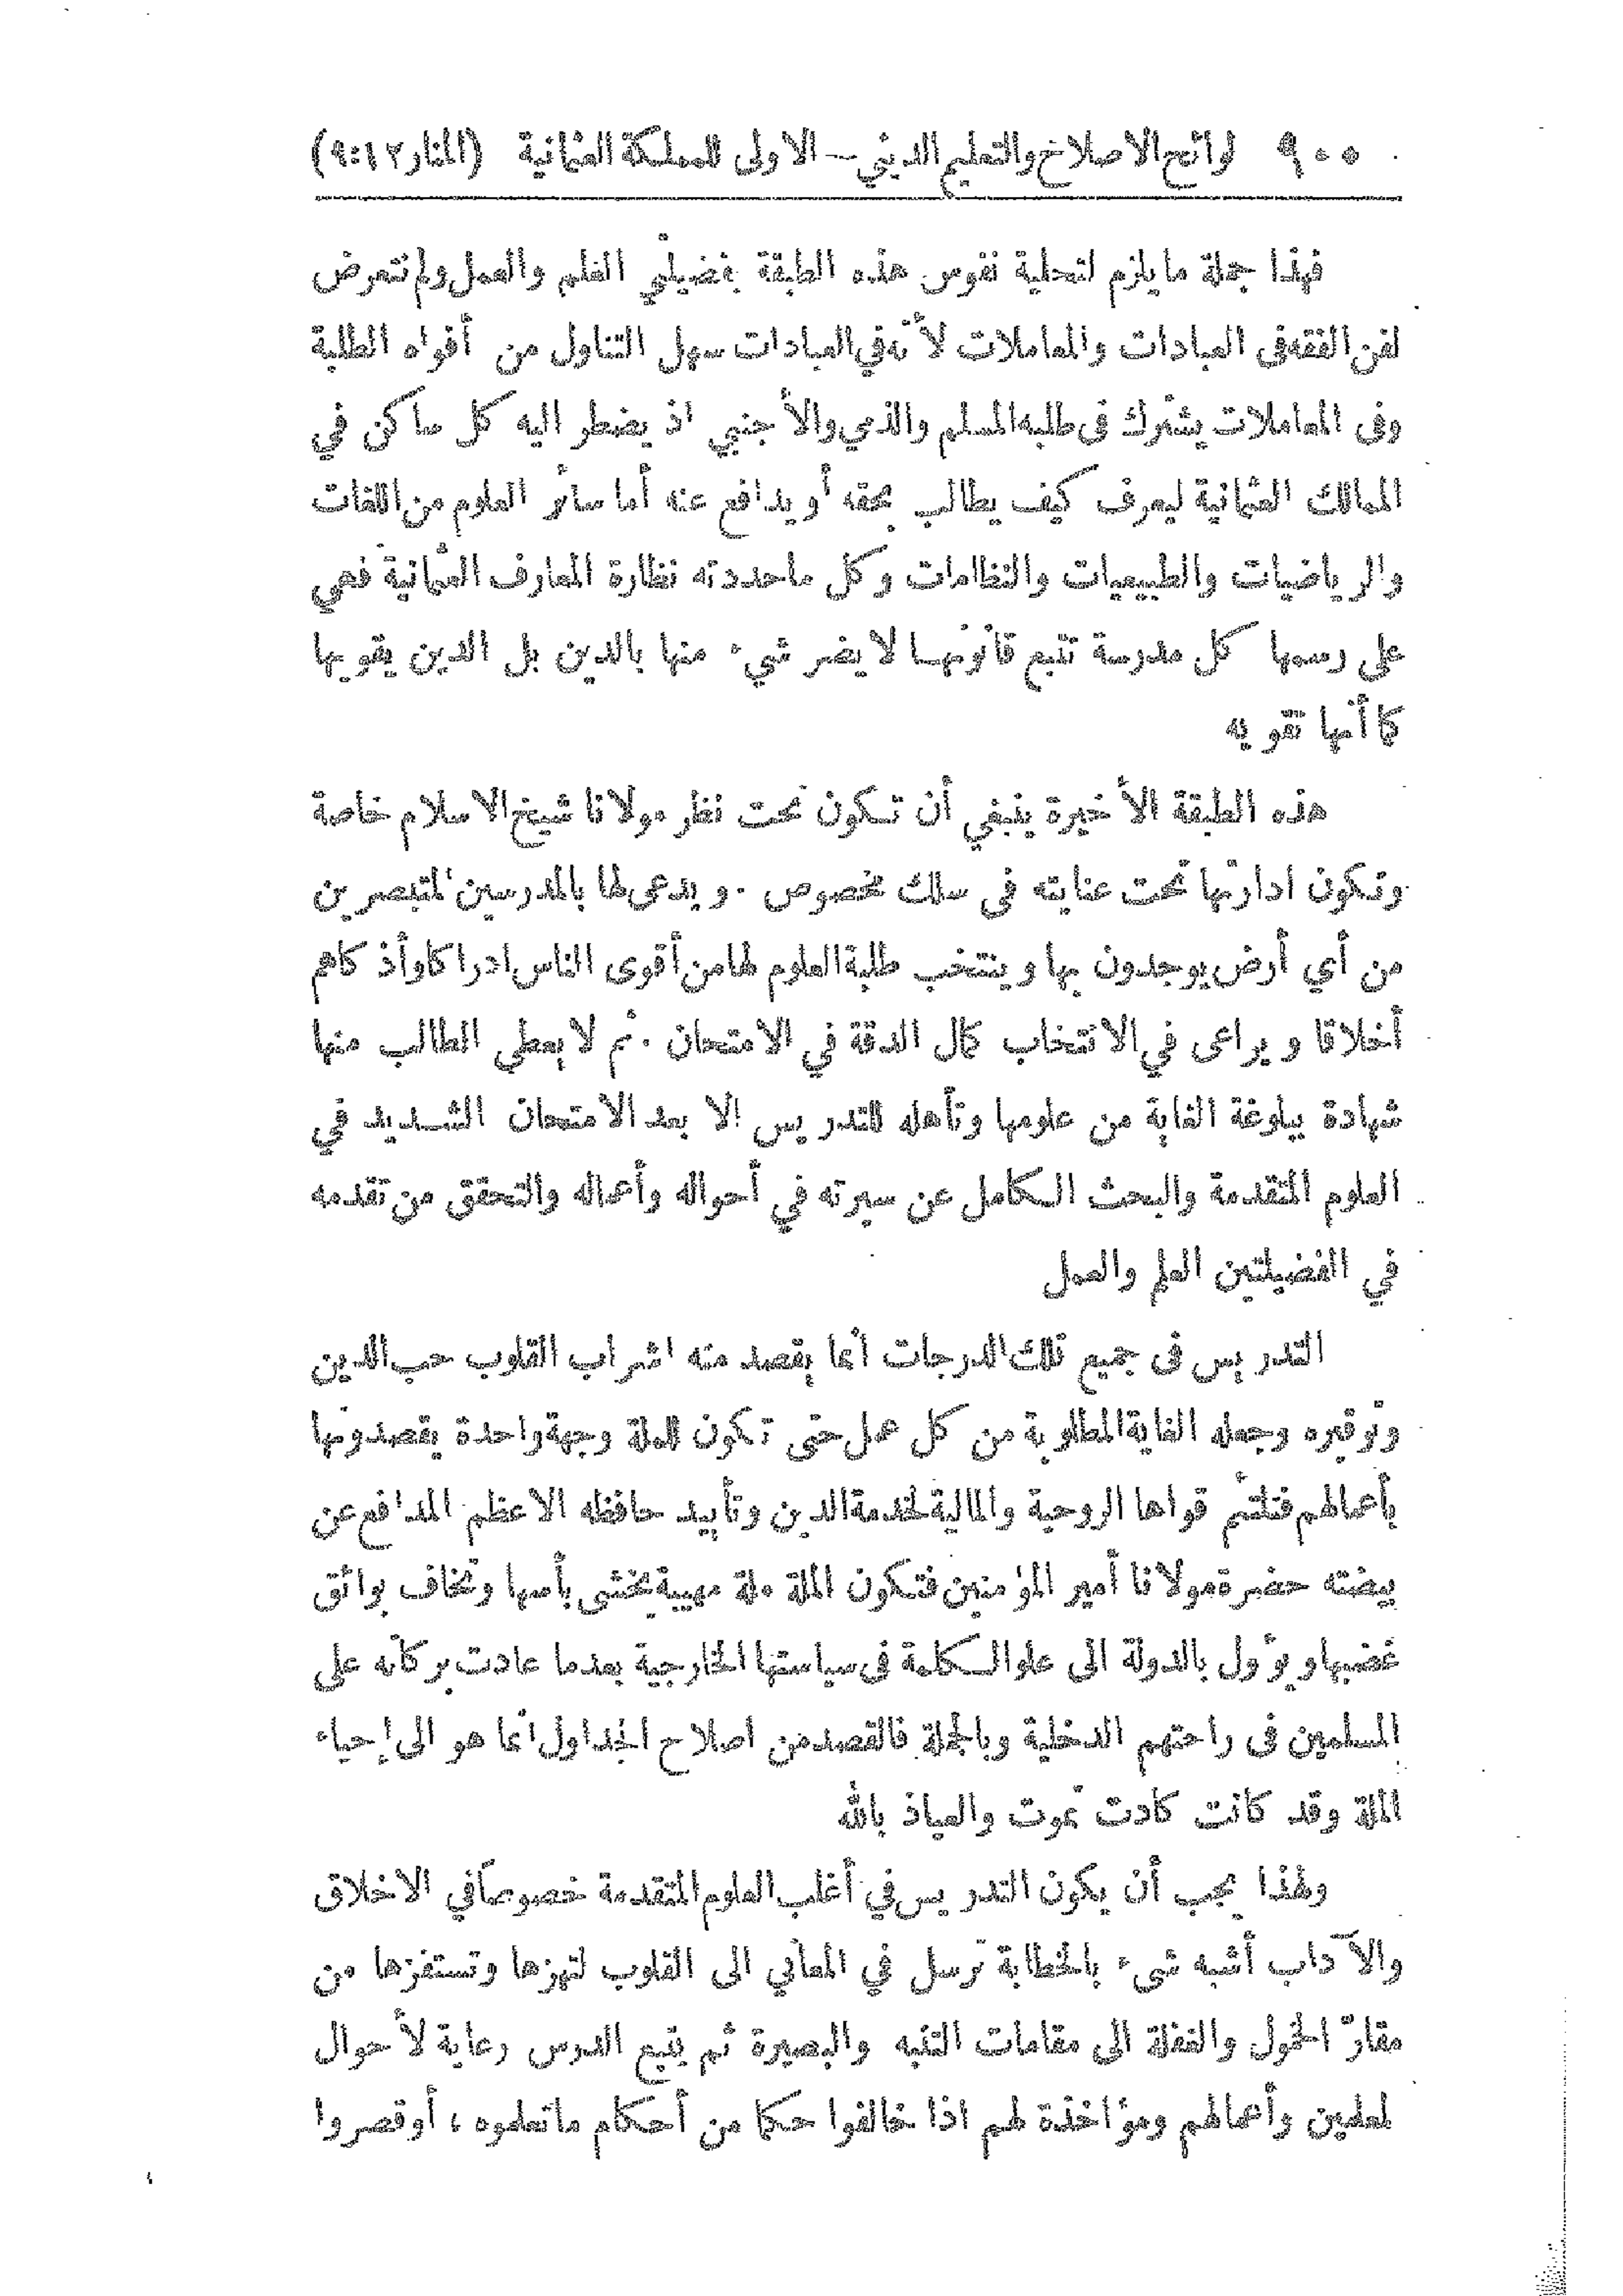 ٩٠٠ لوائح الاصلاح والتعليم الديني — الاولى للمملكة العثمانية (المنار ١٢:٩)
فهذا جملة ما يلزم لتحلية نفوس هذه الطبقة بفضيلتي العلم والعمل ولم نتعرض
لفن الفقه في العبادات والمعاملات لأنه في العبادات سهل التناول من أفواه الطلبة
وفى المعاملات يشترك في طلبه المسلم والذمي والأجنبي اذ يضطر اليه كل ساكن في
الممالك العثمانية ليعرف كيف يطالب بحقه أو يدافع عنه أما سائر العلوم من اللغات
والرياضيات والطبيعيات والنظامات وكل ما حددته نظارة المعارف العثمانية فهي
على رسمها كل مدرسة تتبع قانونها لا يضر شيء منها بالدين بل الدين يقويها
كما أنها تقويه
هذه الطبقة الأخيرة ينبغي أن تكون تحت نظر مولانا شيخ الاسلام خاصة
وتكون ادارتها تحت عنايته في سلك مخصوص . ويدعى لها بالمدرسين المتبصرين
من أي أرض يوجدون بها وينتخب طلبة العلوم لها من أقوى الناس ادراكا وأذكاهم
أخلاقا ويراعى في الانتخاب كمال الدقة في الامتحان . ثم لا يعطي الطالب منها
شهادة ببلوغة الغاية من علومها وتأهله للتدريس إلا بعد الامتحان الشديد في
العلوم المتقدمة والبحث الكامل عن سيرته في أحواله وأعماله والتحقق من تقدمه
في الفضيلتين العلم والعمل
التدريس في جميع تلك الدرجات انما يقصد منه اشراب القلوب حب الدين
وتوقيره وجعله الغاية المطلوبة من كل عمل حتى تكون للملة وجهة واحدة يقصدونها
بأعمالهم فتلتئم قواها الروحية والمالية لخدمة الدين وتأييد حافظه الاعظم المدافع عن
بيضته حضرة مولانا أمير المؤمنين فتكون الملة ملة مهيبة يخشى بأسها وتخاف بوائق
غضبها ويؤول بالدولة الى علو الكلمة في سياستها الخارجية بعدما عادت بركاته على
المسلمين في راحتهم الدخلية وبالجملة فالقصد من اصلاح الجداول انما هو الى إحياء
الملة وقد كانت كادت تموت والعياذ بالله
ولهذا يجب أن يكون التدريس في أغلب العلوم المتقدمة خصوصا في الاخلاق
والآداب أشبه شيء بالخطابة ترسل في المعاني الى القلوب لتهزها وتستفزها من
مقارّ الخمول والغفلة الى مقامات التنبه والبصيرة ثم يتبع الدرس رعاية لأحوال
لمعلمين وأعمالهم ومؤاخذة لهم اذا خالفوا حكما من أحكام ما تعلموه ، أو قصروا